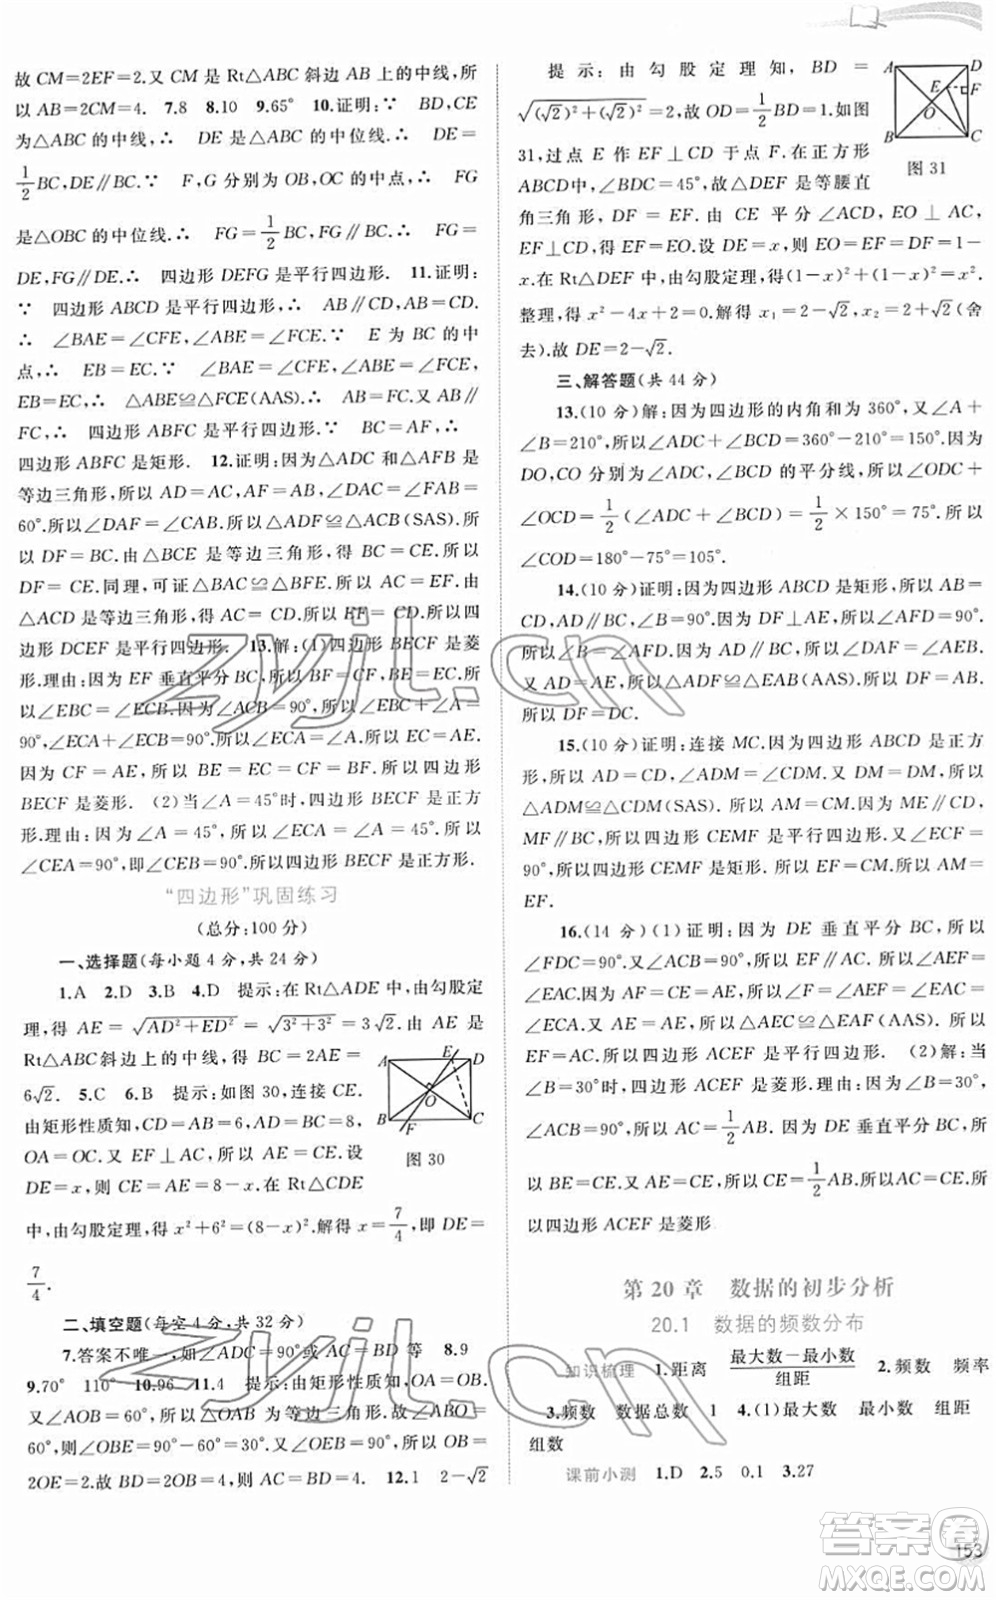 故 CM=2EF=2.又 CM 是 Rt△ABC 斜边 AB 上的中线,所
以 AB=2CM=4. 7.8 8.10 9.65° 10.证明:∵ BD,CE
为△ABC 的中线,∴ DE 是△ABC 的中位线.∴ DE=
1/2 BC,DE∥BC.∵ F,G 分别为 OB,OC 的中点,∴ FG
是△OBC 的中位线.∴ FG=1/2 BC,FG∥BC.∴ FG=
DE,FG∥DE.∴ 四边形 DEFG 是平行四边形. 11.证明:
∵ 四边形 ABCD 是平行四边形,∴ AB∥CD,AB=CD.
∴ ∠BAE=∠CFE,∠ABE=∠FCE.∵ E 为 BC 的中
点,∴ EB=EC.∵ ∠BAE=∠CFE,∠ABE=∠FCE,
EB=EC,∴ △ABE≌△FCE(AAS).∴ AB=CF.∵ AB∥
FC,∴ 四边形 ABFC 是平行四边形.∵ BC=AF,∴ 
四边形 ABFC 是矩形. 12.证明:因为△ADC 和△ABF 是
等边三角形,所以 AD=AC,AF=AB,∠DAC=∠FAB=
60°.所以∠DAF=∠CAB.所以△ADF≌△ACB(SAS).所
以 DF=BC.由△BCE 是等边三角形,得 BC=CE.所以
DF=CE.同理,可证△BAC≌△BFE.所以 AC=EF.由
△ACD 是等边三角形,得 AC=CD.所以 EF=CD.所以四
边形 DCEF 是平行四边形. 13.解:(1)四边形 BECF 是菱
形.理由:因为 EF 垂直平分 BC,所以 BF=CF,BE=CE.所
以∠EBC=∠ECB.因为∠ACB=90°,所以∠EBC+∠A=
90°,∠ECA+∠ECB=90°.所以∠ECA=∠A.所以 CE=AE.
因为 CF=AE,所以 BE=EC=CF=BF.所以四边形
BECF 是菱形. (2)当∠A=45°时,四边形 BECF 是正方
形.理由:因为∠A=45°,所以∠ECA=∠A=45°.所以
∠CEA=90°,即∠CEB=90°.所以菱形 BECF 是正方形.
“四边形”巩固练习
(总分:100 分)
一、选择题(每小题 4 分,共 24 分)
1.A 2.D 3.B 4.D 提示:在 Rt△ADE 中,由勾股定
理,得 AE=√(AD²+ED²)=√(3²+3²)=3√2.由 AE 是
Rt△ABC斜边上的中线,得 BC=2AE=
6√2. 5.C 6.B 提示:如图 30,连接 CE.
由矩形性质知,CD=AB=6,AD=BC=8,
OA=OC.又 EF⊥AC,所以 AE=CE.设
DE=x,则 CE=AE=8-x.在 Rt△CDE
A E D O B F C
图 30
中,由勾股定理,得 x²+6²=(8-x)².解得 x=7/4,即 DE=
7/4.
二、填空题(每空 4 分,共 32 分)
7.答案不唯一,如∠ADC=90°或 AC=BD 等 8.9
9.70° 110° 10.96 11.4 提示:由矩形性质知,OA=OB.
又∠AOB=60°,所以△OAB 为等边三角形.故∠ABO=
60°,则∠OBE=90°-60°=30°.又∠OEB=90°,所以 OB=
2OE=2.故 BD=2OB=4,则 AC=BD=4. 12.1 2-√2
提示:由勾股定理知,BD=
√((√2)²+(√2)²)=2,故 OD=1/2 BD=1.如图
31,过点 E 作 EF⊥CD 于点 F.在正方形
ABCD中,∠BDC=45°,故△DEF 是等腰直
角三角形,DF=EF.由 CE 平分∠ACD,EO⊥AC,
A D E F O B C
图 31
EF⊥CD,得 EO=EF.设 DE=x,则 EO=DF=EF=1-
x.在 Rt△DEF 中,由勾股定理,得(1-x)²+(1-x)²=x².
整理,得 x²-4x+2=0.解得 x₁=2-√2,x₂=2+√2(舍
去).故 DE=2-√2.
三、解答题(共 44 分)
13.(10 分)解:因为四边形的内角和为 360°,又∠A+
∠B=210°,所以∠ADC+∠BCD=360°-210°=150°.因为
DO,CO 分别为∠ADC,∠BCD 的平分线,所以∠ODC+
∠OCD=1/2(∠ADC+∠BCD)=1/2×150°=75°.所以
∠COD=180°-75°=105°.
14.(10 分)证明:因为四边形 ABCD 是矩形,所以 AB=
CD,AD∥BC,∠B=90°.因为 DF⊥AE,所以∠AFD=90°.
所以∠AFD=∠B.由 AD∥BC,所以∠DAE=∠AEB.
又 AD=AE,所以△ADF≌△EAB(AAS).所以 DF=AB.
所以 DF=DC.
15.(10 分)证明:连接 MC.因为四边形 ABCD 是正方
形,所以 AD=CD,∠ADM=∠CDM.又 DM=DM,所以
△ADM≌△CDM(SAS).所以 AM=CM.因为 ME∥CD,
MF∥BC,所以四边形 CEMF 是平行四边形.又∠ECF=
90°,所以四边形 CEMF 是矩形.所以 EF=CM.所以 AM=
EF.
16.(14 分)(1)证明:因为 DE 垂直平分 BC,所以
∠FDC=90°.又∠ACB=90°,所以 DF∥AC.所以∠AEF=
∠EAC.因为 AF=CE=AE,所以∠F=∠AEF=∠EAC=
∠ECA.又 AE=EA,所以△AEC≌△EAF(AAS).所以
EF=AC.所以四边形 ACEF 是平行四边形. (2)解:当
∠B=30°时,四边形 ACEF 是菱形.理由:因为∠B=30°,
∠ACB=90°,所以 AC=1/2 AB.因为 DE 垂直平分 BC,所
以 BE=CE.又 AE=CE,所以 CE=1/2 AB.所以 AC=CE.所
以四边形 ACEF 是菱形.
第 20 章 数据的初步分析
20.1 数据的频数分布
知识梳理 1.距离 (最大数-最小数)/组距 2.频数 频率
3.频数 数据总数 1 4.(1)最大数 最小数 组距
组数
课前小测 1.D 2.5 0.1 3.27
zyjl.cn
zyjl.cn
答案圈
MXQE.COM
153